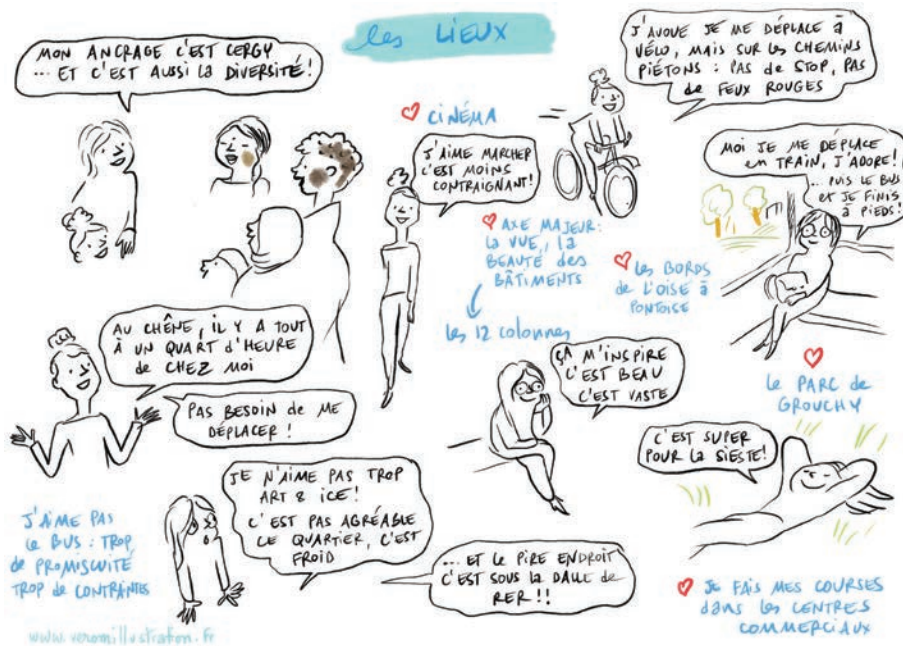 les LIEUX
MON ANCRAGE C'EST CERGY
... ET C'EST AUSSI LA DIVERSITÉ !
J'AVOUE JE ME DÉPLACE à
VÉLO, MAIS SUR les CHEMINS
PIÉTONS : PAS de STOP, PAS
de FEUX ROUGES
CINÉMA
J'AIME MARCHER
C'EST MOINS
CONTRAIGNANT !
MOI JE ME DÉPLACE
en TRAIN, J'ADORE !
... PUIS LE BUS
et JE FINIS
à PIEDS !
AXE MAJEUR :
la VUE, la
BEAUTÉ des
BÂTIMENTS
les 12 colonnes
les BORDS
de L'OISE à
PONTOISE
AU CHÊNE, iL Y A TOUT
À UN QUART d'HEURE
de CHEZ MOI
PAS BESOIN de ME
DÉPLACER !
ÇA M'INSPIRE
C'EST BEAU
C'EST VASTE
le PARC de
GROUCHY
C'EST SUPER
POUR la SIESTE !
JE N'AIME PAS TROP
ART & ICE !
C'EST PAS AGRÉABLE
CE QUARTIER, C'EST
FROID
J'AIME PAS
le BUS : TROP
de PROMISCUITÉ
TROP de CONTRAINTES
... ET le PIRE ENDROIT
C'EST SOUS la DALLE de
RER !!
JE FAIS MES COURSES
dans les CENTRES
COMMERCIAUX
www.veromillustration.fr